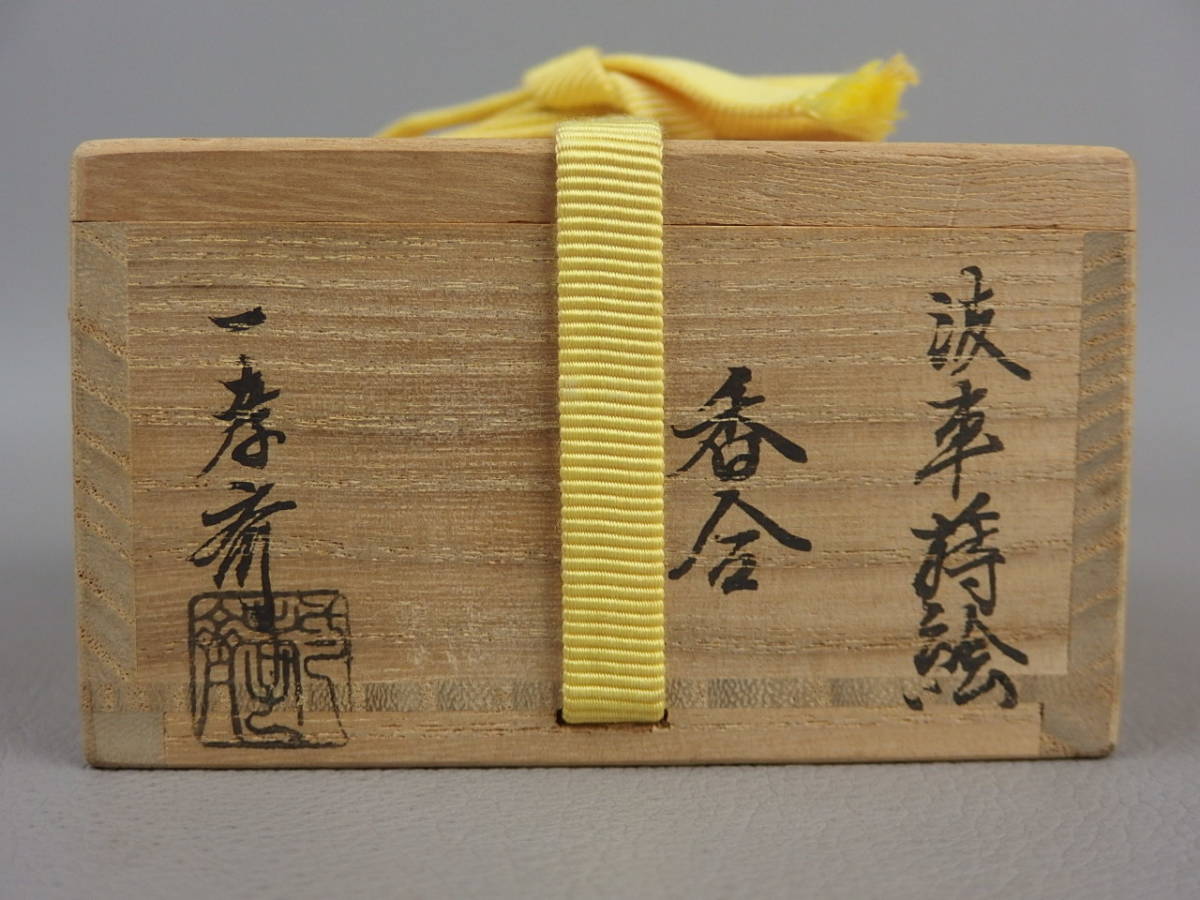 波車蒔絵
香合
一孝斎